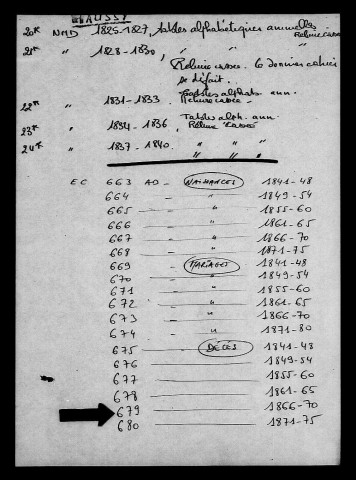 AUSSI
20K NMD 1825-1827, tables alphabétiques annuelles
Reliure cassée
21K " 1828-1830, " " "
Reliure cassée. Le dernier cahier
se défait.
22K " 1831-1833. Tables alphab. ann.
Reliure cassée
23K " 1834-1836, Tables alph. ann.
Reliure cassée
24K " 1837-1840. " " "
" "
EC 663 AD- NAISSANCES 1841-48
664 - " 1849-54
665 - " 1855-60
666 - " 1861-65
667 - " 1866-70
668 - " 1871-75
669 - MARIAGES 1841-48
670 " 1849-54
671 - " 1855-60
672 - " 1861-65
673 - " 1866-70
674 - " 1871-80
675 DÉCÈS 1841-48
676 1849-54
677 1855-60
678 1861-65
679 1866-70
680 1871-75